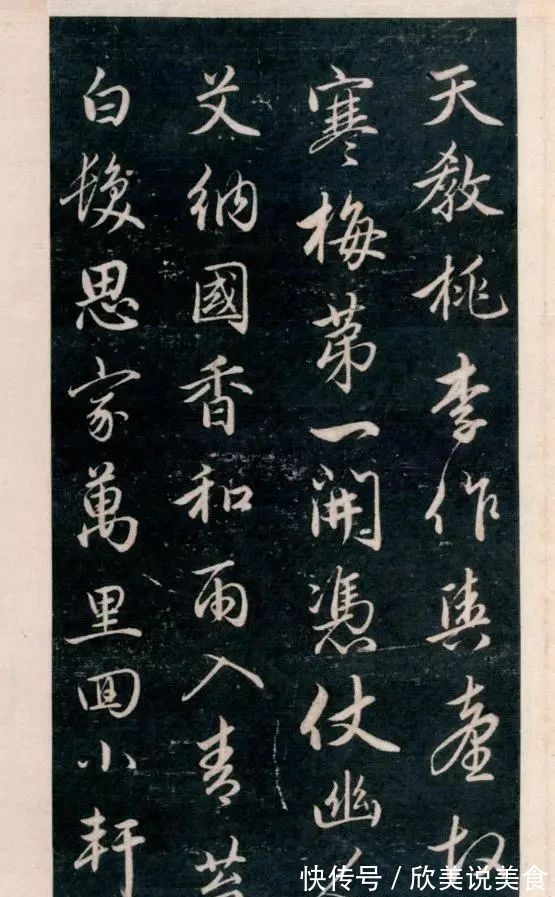 天教桃李作輿臺故
寒梅第一開憑仗幽人
艾納國香和雨入青苔
白髮思家萬里回小軒
快传号／欣美说美食